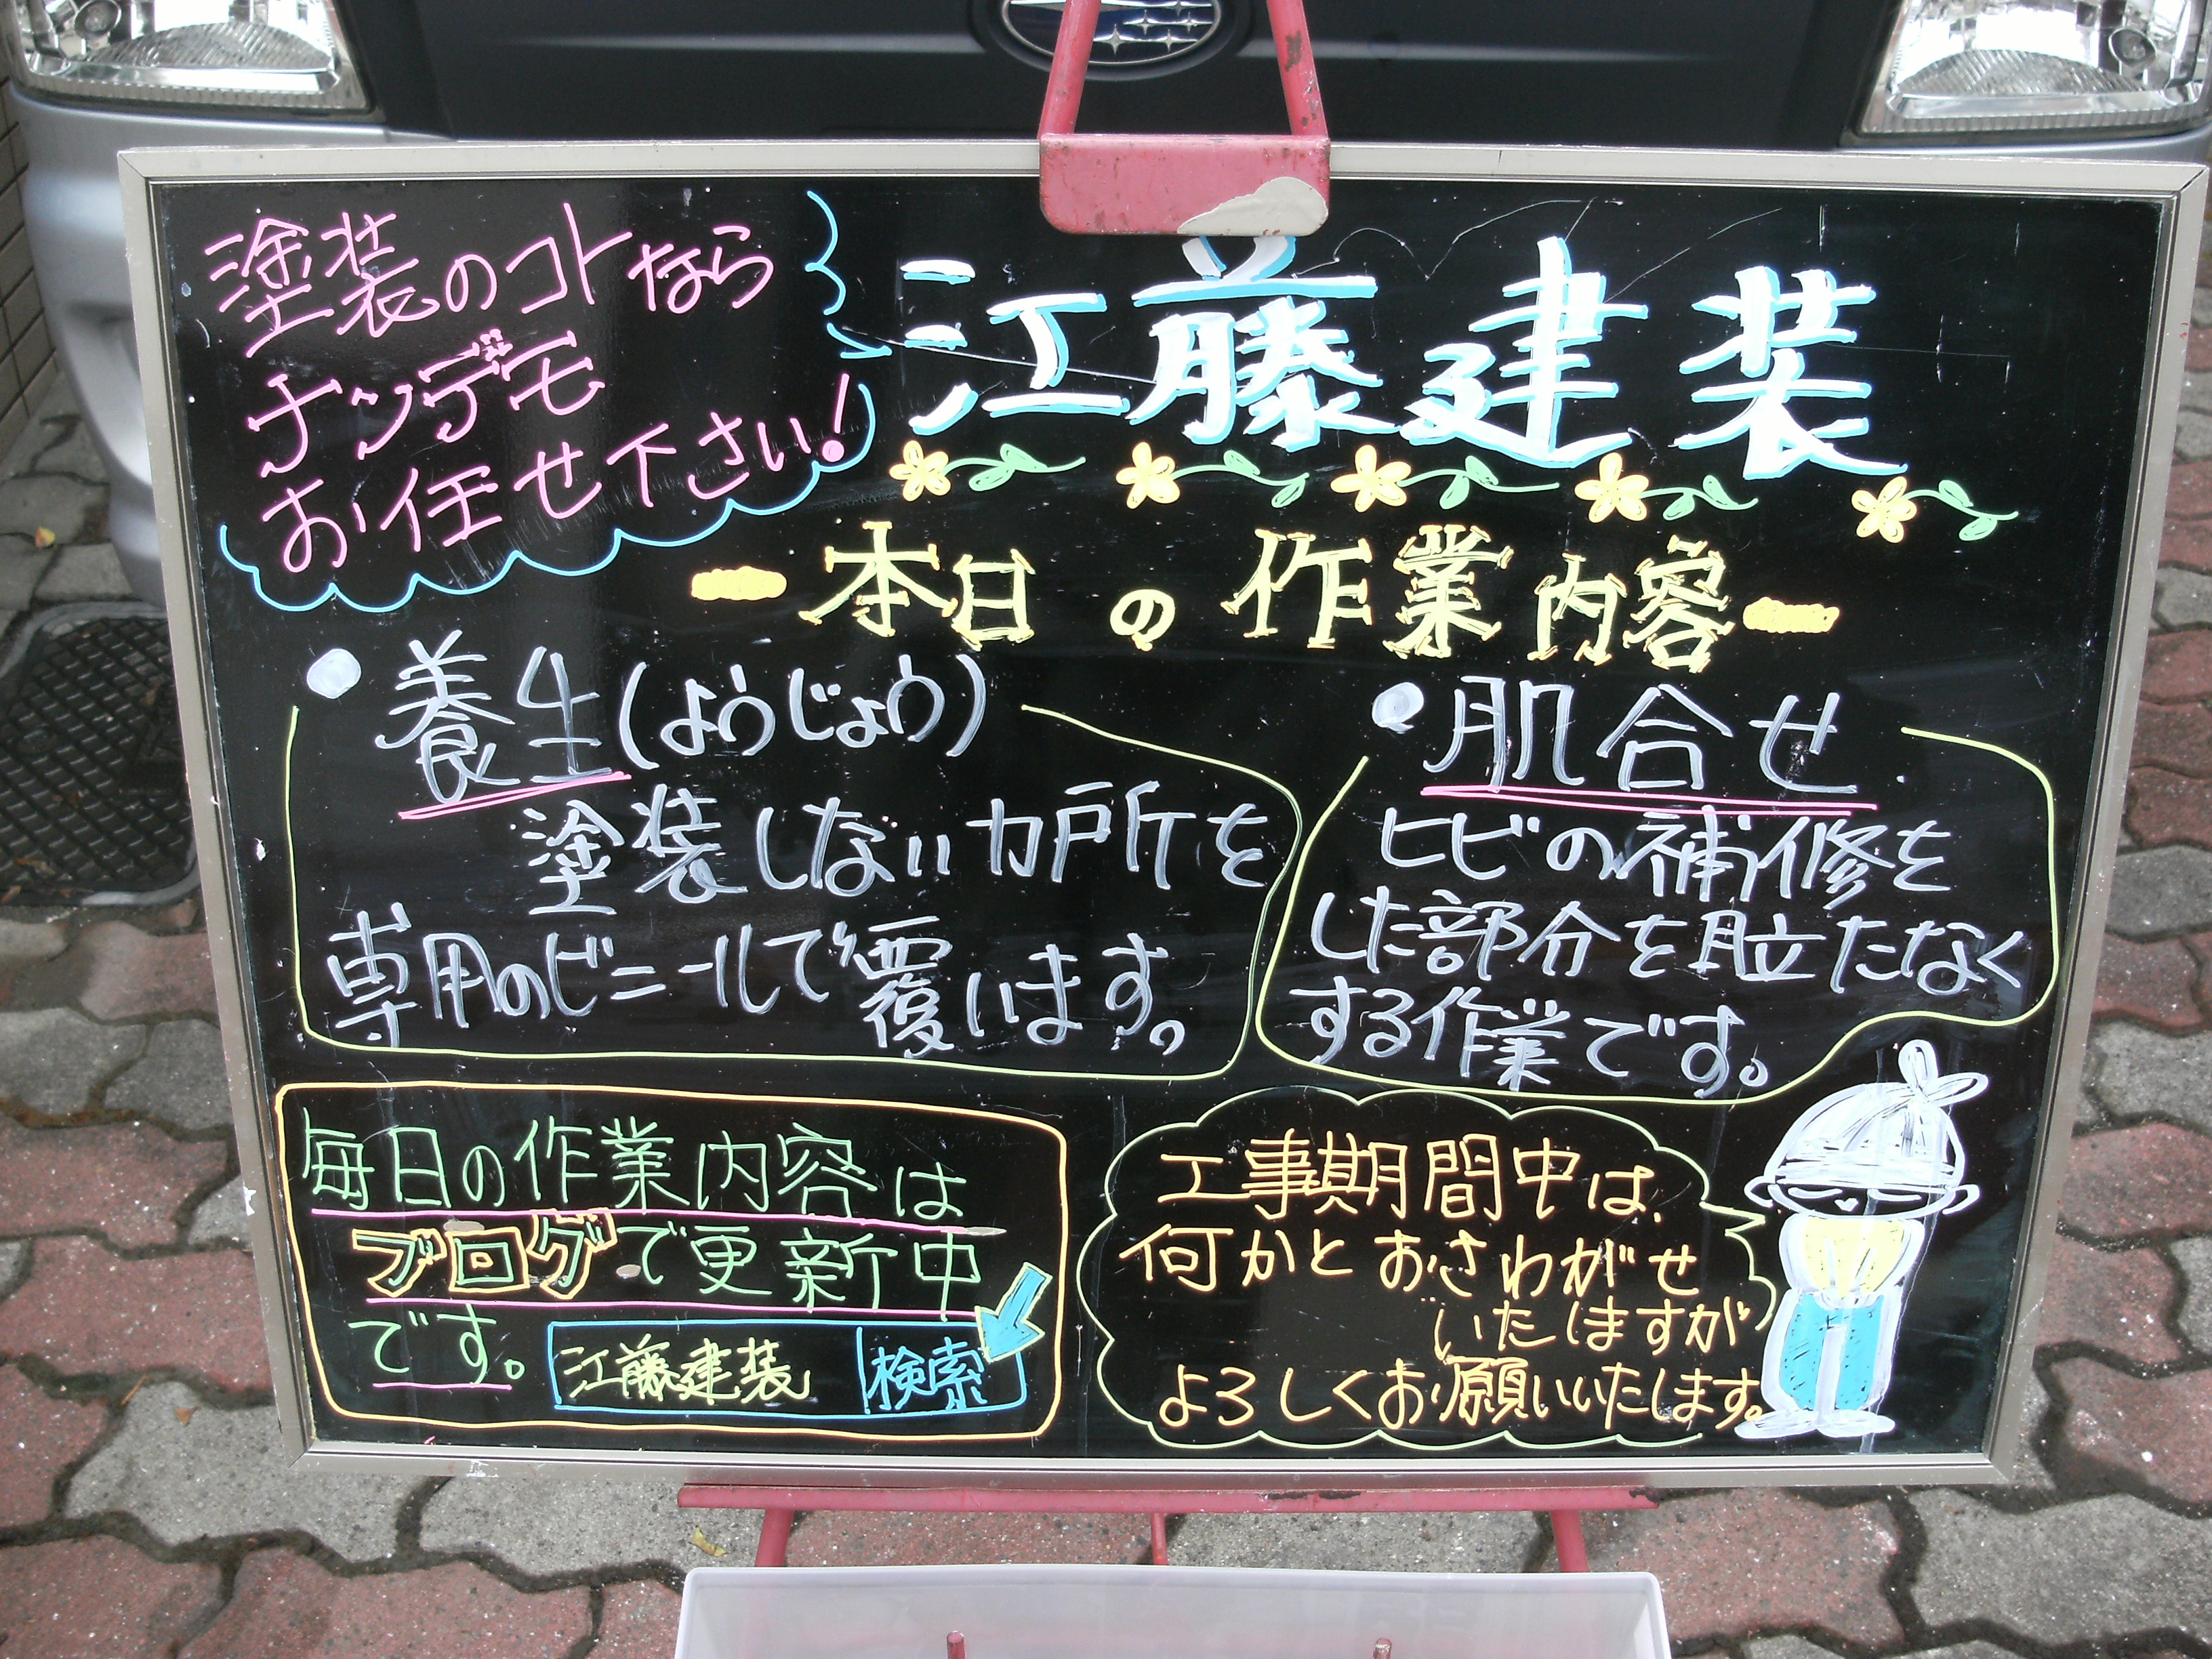 塗装のコトなら
ナンデモ
お任せ下さい!
江藤建装
本日の作業内容
養生(ようじょう)
塗装しないカ戸斤を
専用のビニールで覆います。
肌合せ
ヒビの補修を
した部分を目立たなく
する作業です。
毎日の作業内容は
ブログで更新中
です。
江藤建装 検索
工事期間中は、
何かとおさわがせ
いたしますが
よろしくお願いいたします。